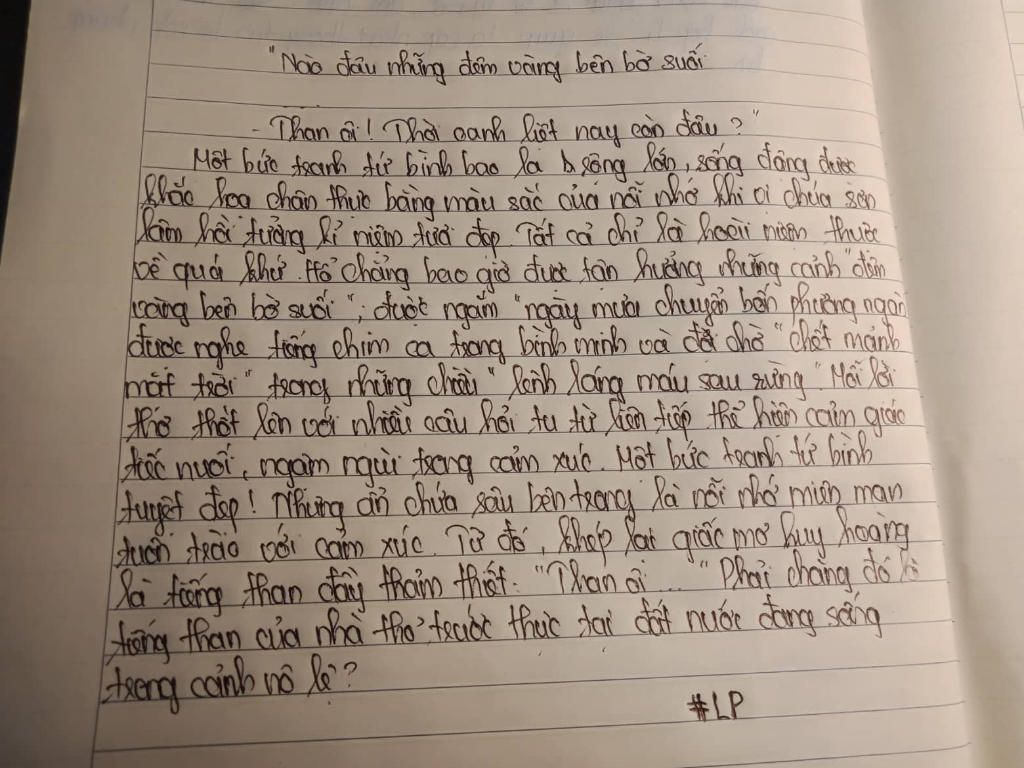 "Nào đâu những đêm vàng bên bờ suối
- Than ôi! Thời oanh liệt nay còn đâu?"
Một bức tranh tứ bình bao la rộng lớn, sống động được
khắc hoạ chân thực bằng màu sắc của nỗi nhớ khi chúa sơn
lâm hồi tưởng kỉ niệm tươi đẹp. Tất cả chỉ là hoài niệm thuộc
về quá khứ. Hổ chẳng bao giờ được tận hưởng những cảnh "đêm
vàng bên bờ suối"; được ngắm "ngày mưa chuyển bốn phương ngàn
được nghe tiếng chim ca trong bình minh và để chờ "chết mảnh
mặt trời" trong những chiều "lênh láng máu sau rừng". Mỗi lời
thơ thốt lên với nhiều câu hỏi tu từ liên tiếp thể hiện cảm giác
tiếc nuối, ngậm ngùi trong cảm xúc. Một bức tranh tứ bình
tuyệt đẹp! Nhưng ẩn chứa sâu bên trong là nỗi nhớ miên man
tuôn trào với cảm xúc. Từ đó, khép lại giấc mơ huy hoàng
là tiếng than đầy thảm thiết: "Than ôi..." Phải chăng đó là
tiếng than của nhà thơ trước thực tại đất nước đang sống
trong cảnh nô lệ?
#LP